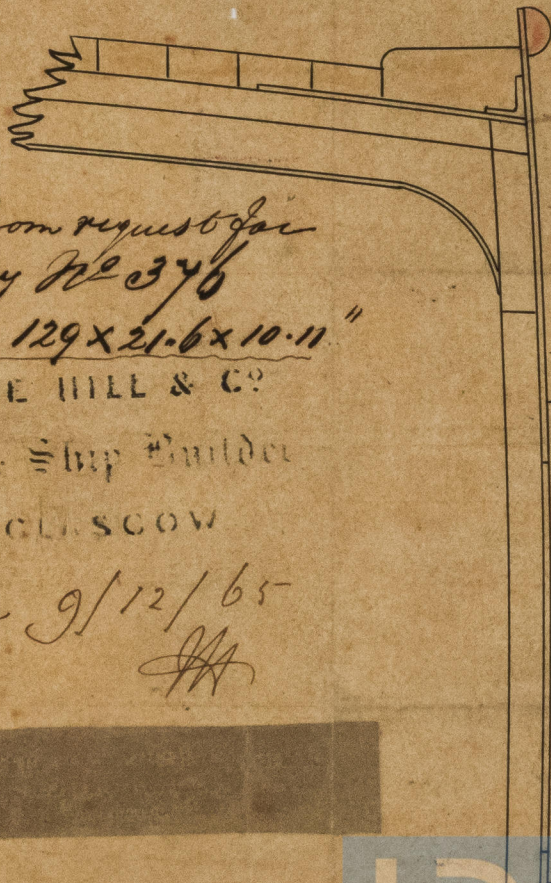 om request for
y Nº 376
129 x 21.6 x 10.11"
E HILL & Cº
Ship Builder
GLASGOW
9/12/65